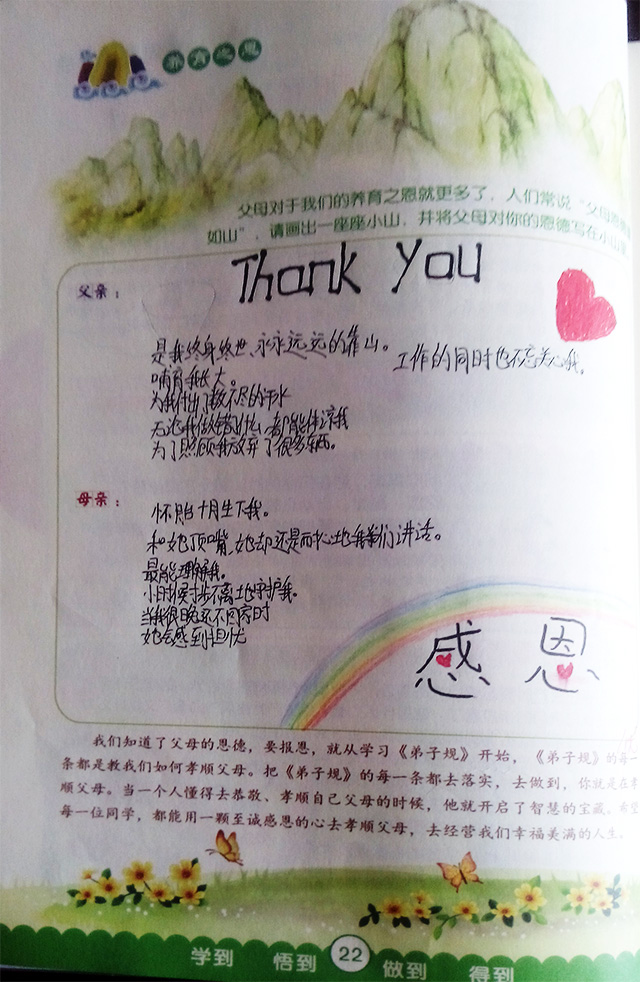 养育之恩
父母对于我们的养育之恩就更多了，人们常说“父母恩德
如山”，请画出一座座小山，并将父母对你的恩德写在小山里
Thank You
父亲：
是我终身终世、永永远远的靠山。
工作的同时也不忘关心我。
哺育我长大。
为我付出了数不尽的汗水
无论我做错什么，都能体谅我
为了照顾我放弃了很多东西。
母亲：
怀胎十月生下我。
和她顶嘴，她却还是耐心地我们讲话。
最能理解我。
小时候寸步不离地守护我。
当我很晚还不回家时
她会感到担忧
感恩
我们知道了父母的恩德，要报恩，就从学习《弟子规》开始，《弟子规》的每一
条都是教我们如何孝顺父母。把《弟子规》的每一条都去落实，去做到，你就是在孝
顺父母。当一个人懂得去恭敬、孝顺自己父母的时候，他就开启了智慧的宝藏。希望
每一位同学，都能用一颗至诚感恩的心去孝顺父母，去经营我们幸福美满的人生。
学到 悟到 22 做到 得到